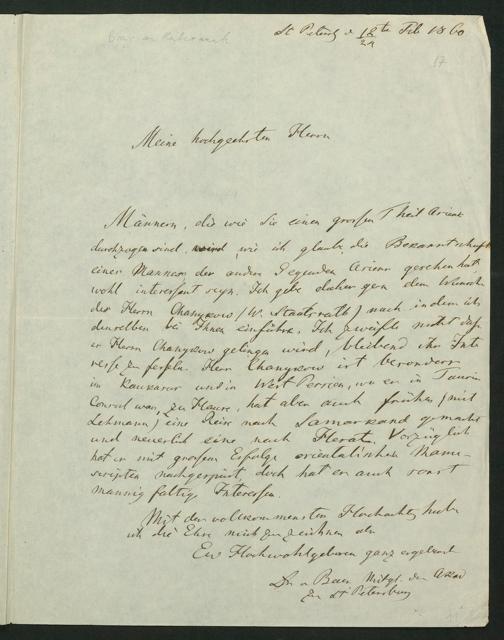 St Petersb d 12/24 te Feb 1860
17
Meine hochgeehrten Herrn
Männern, die wie Sie einen grossen Theil Asiens
durchzogen sind, wird, wie ich glaube, die Bekanntschaft
eines Mannes der andere Gegenden Asiens gesehen hat
wohl interessant seyn. Ich gebe daher gern dem Wunsche
des Herrn Chanykow (W. Staatsrath) nach indem ich
denselben bei Ihnen einführe. Ich zweifle nicht dass
es Herrn Chanykow gelingen wird, bleibend ihr Inte
resse zu fesseln. Herr Chanykow ist besonders
im Kaukasus und in West Persien, wo er in Tauris
Consul war, zu Hause, hat aber auch früher (mit
Lehmann) eine Reise nach Samarkand gemacht
und neuerlich eine nach Herat. Vorzüglich
hat er mit grossem Erfolge orientalischen Manu-
scripten nachgespürt, doch hat er auch sonst
mannigfaltige Interessen.
Mit der vollkommensten Hochachtg habe
ich die Ehre mich zu zeichnen als
Ew Hochwohlgeboren ganz ergebenst
Dr v Baer, Mitgl. der Akad
zu St Petersburg